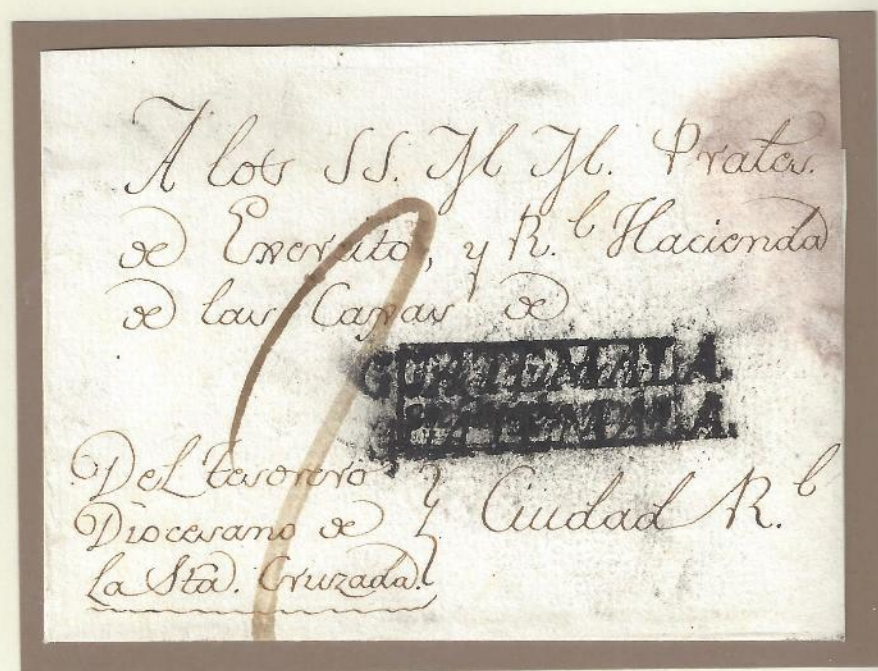 A los SS. M M. Prates.
de Exercito, y R.l Hacienda
de las Caxas de
GUATEMALA.
GUATEMALA.
Del tesorero
Diocesano de
la Sta. Cruzada.
Ciudad R.l